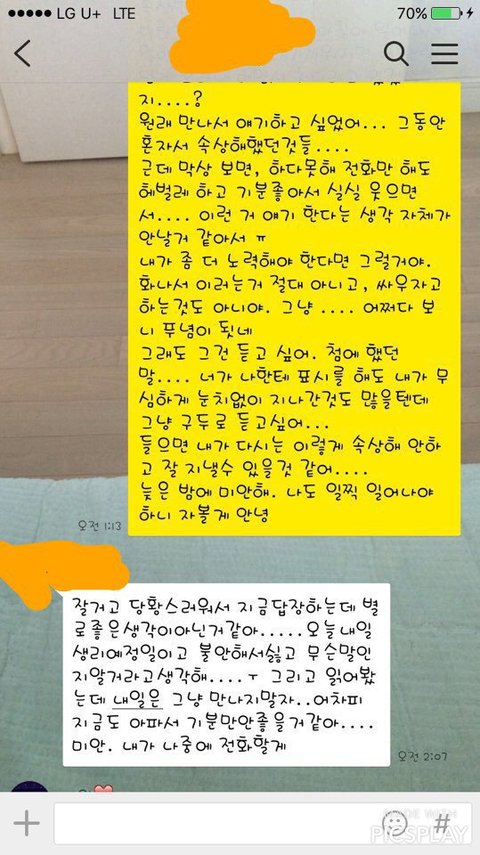 LG U+ LTE 70%
지....?
원래 만나서 얘기하고 싶었어... 그동안
혼자서 속상해했던것들....
근데 막상 보면, 하다못해 전화만 해도
헤벌레 하고 기분좋아서 실실 웃으면
서.... 이런 거 얘기 한다는 생각 자체가
안날거 같아서 ㅠ
내가 좀 더 노력해야 한다면 그럴거야.
화나서 이러는거 절대 아니고, 싸우자고
하는것도 아니야. 그냥 .... 어쩌다 보
니 푸념이 됫네
그래도 그건 듣고 싶어. 첨에 했던
말.... 너가 나한테 표시를 해도 내가 무
심하게 눈치없이 지나간것도 많을텐데
그냥 구두로 듣고싶어...
들으면 내가 다시는 이렇게 속상해 안하
고 잘 지낼수 있을것 같어....
늦은 밤에 미안해. 나도 일찍 일어나야
하니 자볼게 안녕
오전 1:13
잘거고 당황스러워서 지금답장하는데 별
로좋은생각이아닌거같아.....오늘내일
생리예정일이고 불안해서싫고 무슨말인
지알거라고생각해....ㅜ 그리고 읽어봤
는데 내일은 그냥 만나지말자..어차피
지금도 아파서 기분만안좋을거같아....
미안. 내가 나중에 전화할게
오전 2:07
#
MADE WITH
PICSPLAY